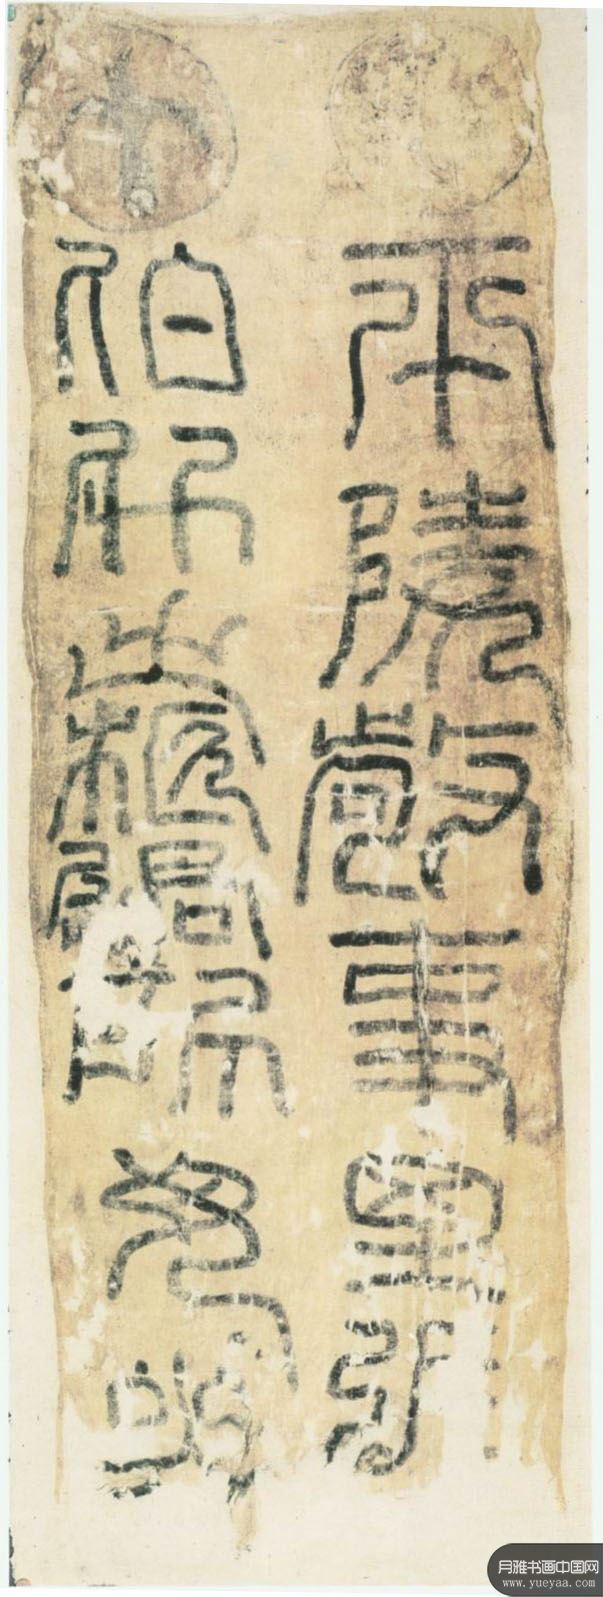 平陵敬事里張
伯升之柩過所毋哭
月雅书画中国网
www.yueyaa.com